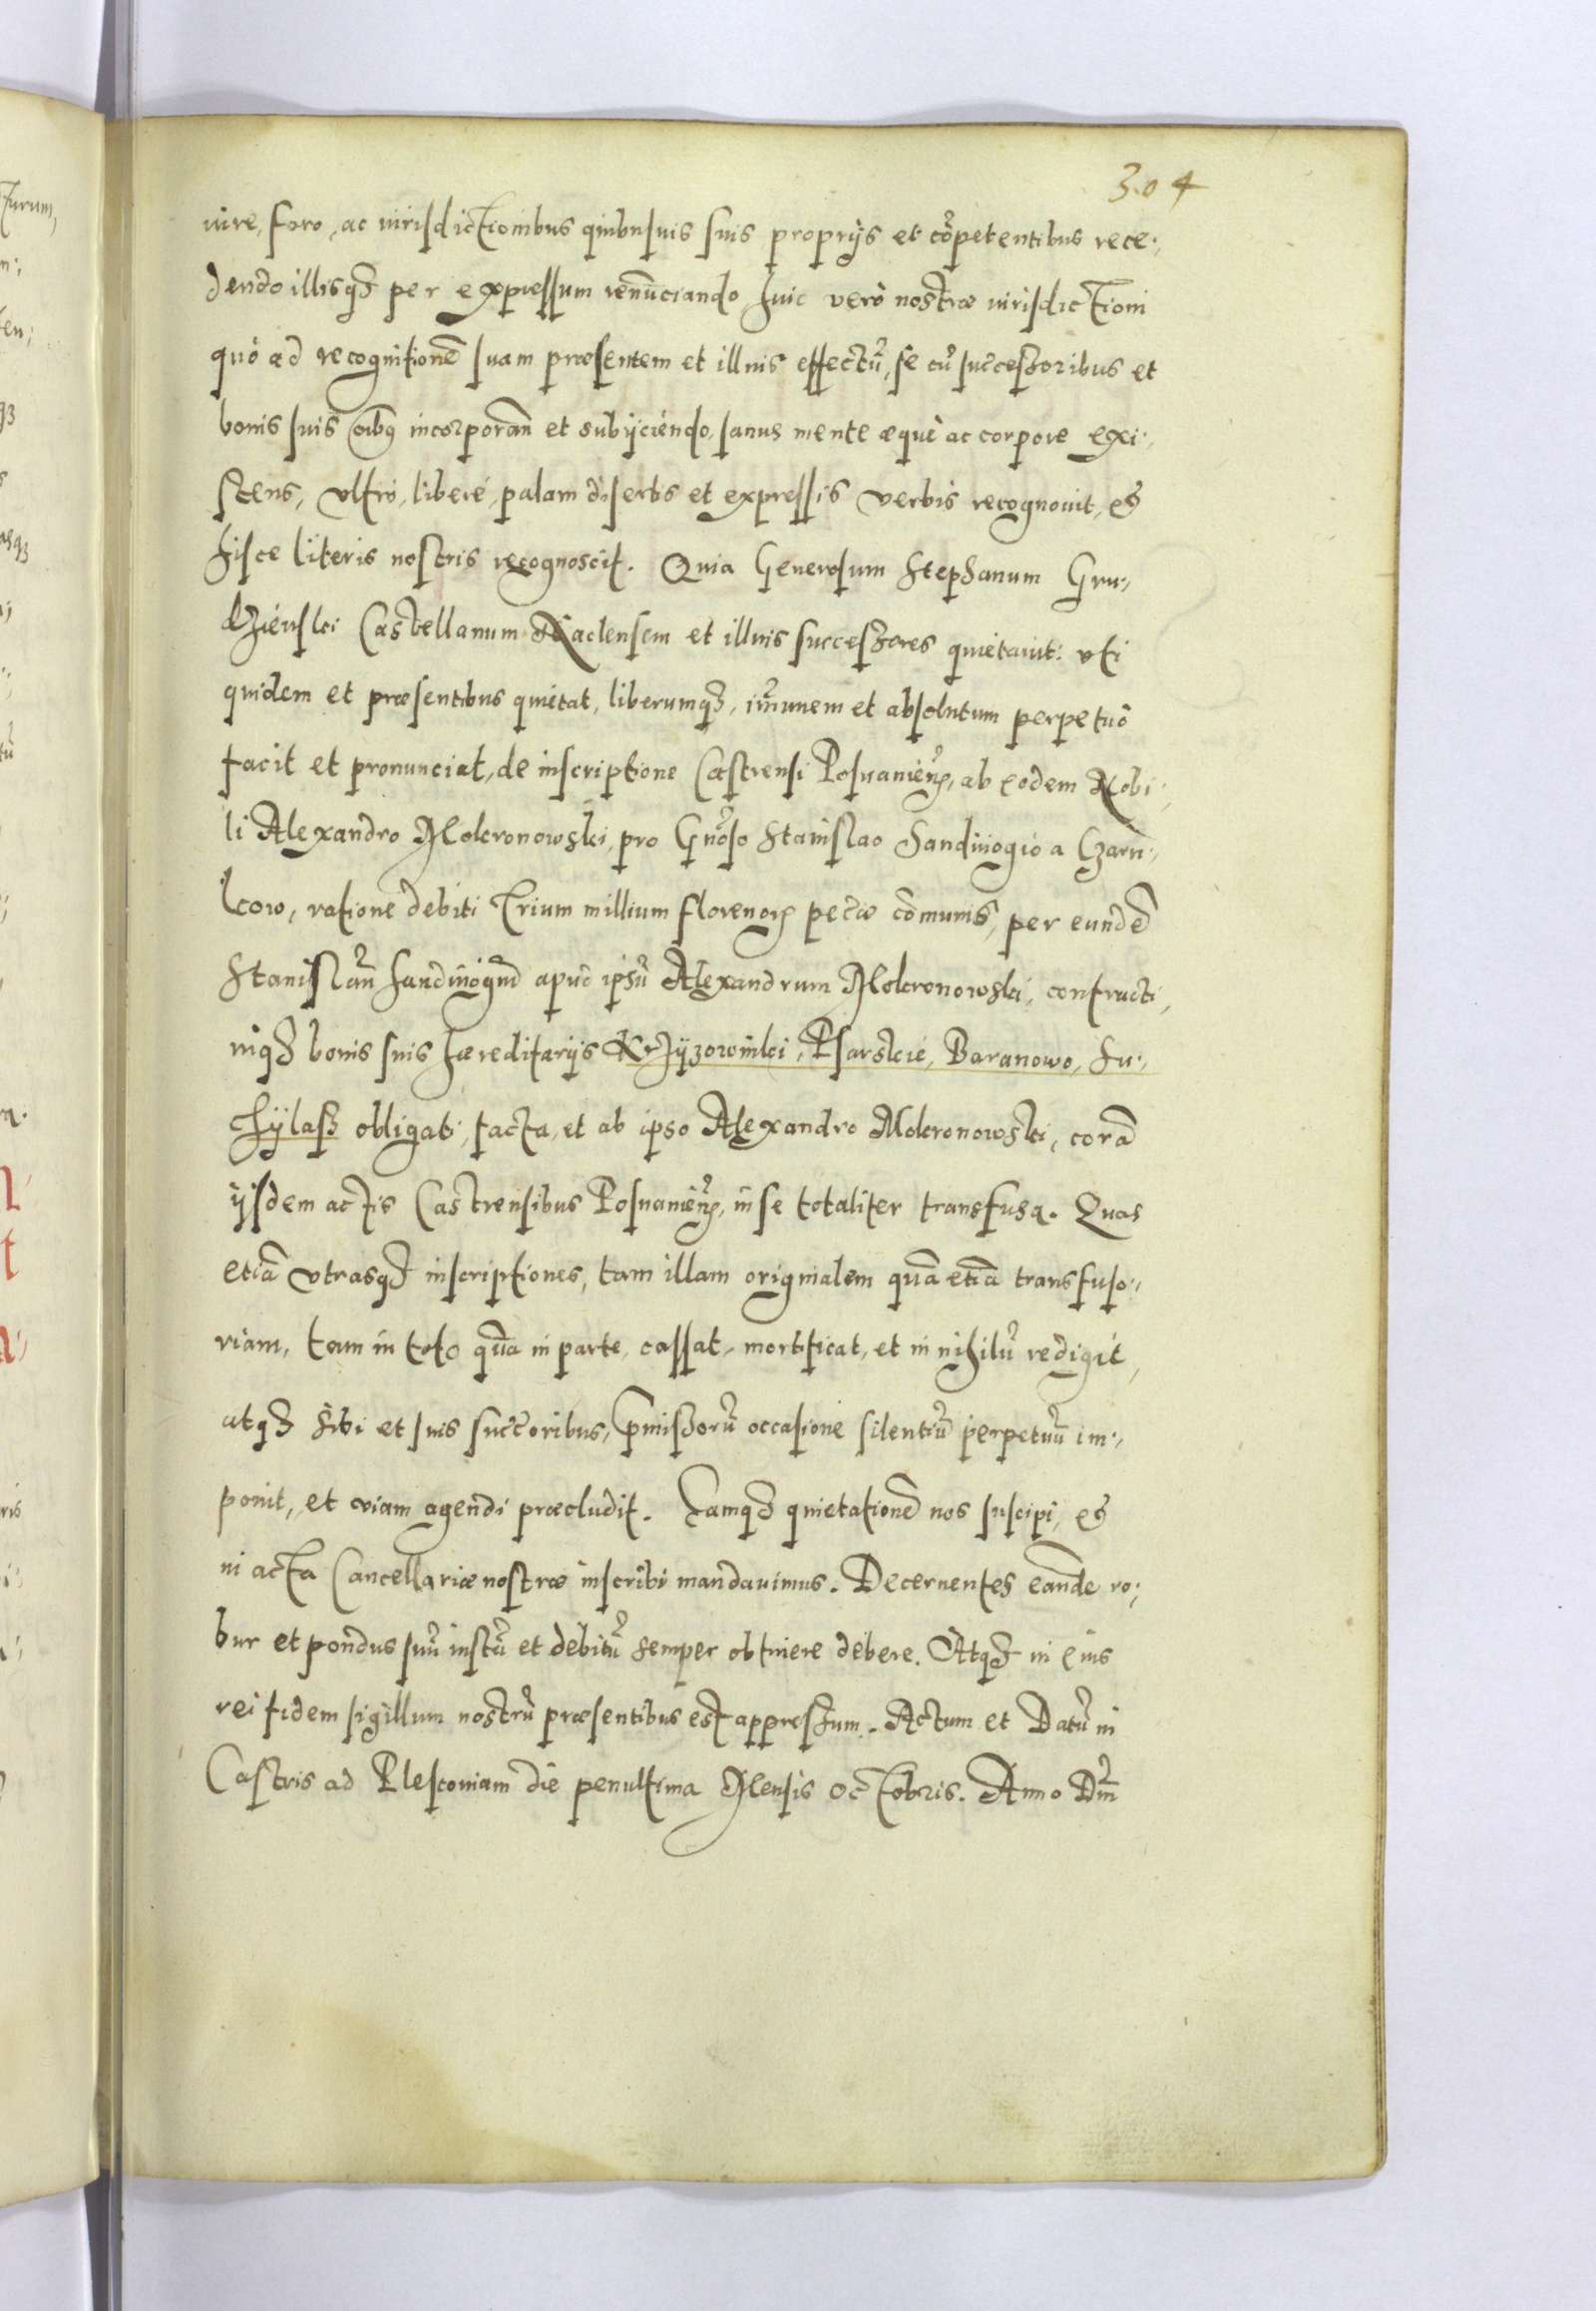 304
iure, foro, ac iurisdictionibus quibusuis suis proprijs et cõpetentibus rece:,
dendo illisq3 per expressum renunciando huic verò nostræ iurisdictioni
quò ad recognitionẽ suam præsentem et illius effectũ, se cũ successoribus et
bonis suis oib9 incorporan et subijciendo, sanus mente æquè ac corpore exi:,
stens, vltrò, liberè, palam disertis et expressis verbis recognouit, et
hisce literis nostris recognoscit. Quia Generosum Stephanum Gru:,
dzienski Castellanum Naclensem et illius successores quietauit: vti
quidem et præsentibus quietat, liberumq3, imũnem et absolutum perpetuò
facit et pronunciat, de inscriptione Castrensi Posnanien, ab eodem Nobi:,
li Alexandro Mokronowski, pro Gnoso Stanislao Sandiuogio a Czarn:,
kow, ratione debiti Trium millium florenor pecæ cõmunis, per eundẽ
Stanislaũ Sandiuogiũ apud ipsũ Alexandrum Mokronowski, contracti,
inq3 bonis suis hæreditarijs Krzyzowniki, Psarskie, Baranowo, Su:,
chylas obligati, facta, et ab ipso Alexandro Mokronowski, corã
ijsdem actis Castrensibus Posnanien, in se totaliter transfusa. Quas
etiã vtrasq3 inscriptiones, tam illam originalem quã etiã transfuso:,
riam, tam in toto quã in parte, cassat, mortificat, et in nihilũ redigit,
atq3 sibi et suis succoribus, pmissorũ occasione silentiũ perpetuũ im:,
ponit, et viam agendi præcludit. Eamq3 quietationẽ nos suscipi, et
in acta Cancellariæ nostræ inscribi mandauimus. Decernentes eandẽ ro:,
bur et pondus suũ iustũ et debitũ semper obtinere debere. Atq3 in eius
rei fidem sigillum nostrũ præsentibus est appressum. Actum et Datũ in
Castris ad Plescouiam die penultima Mensis Octobris. Anno Dñi